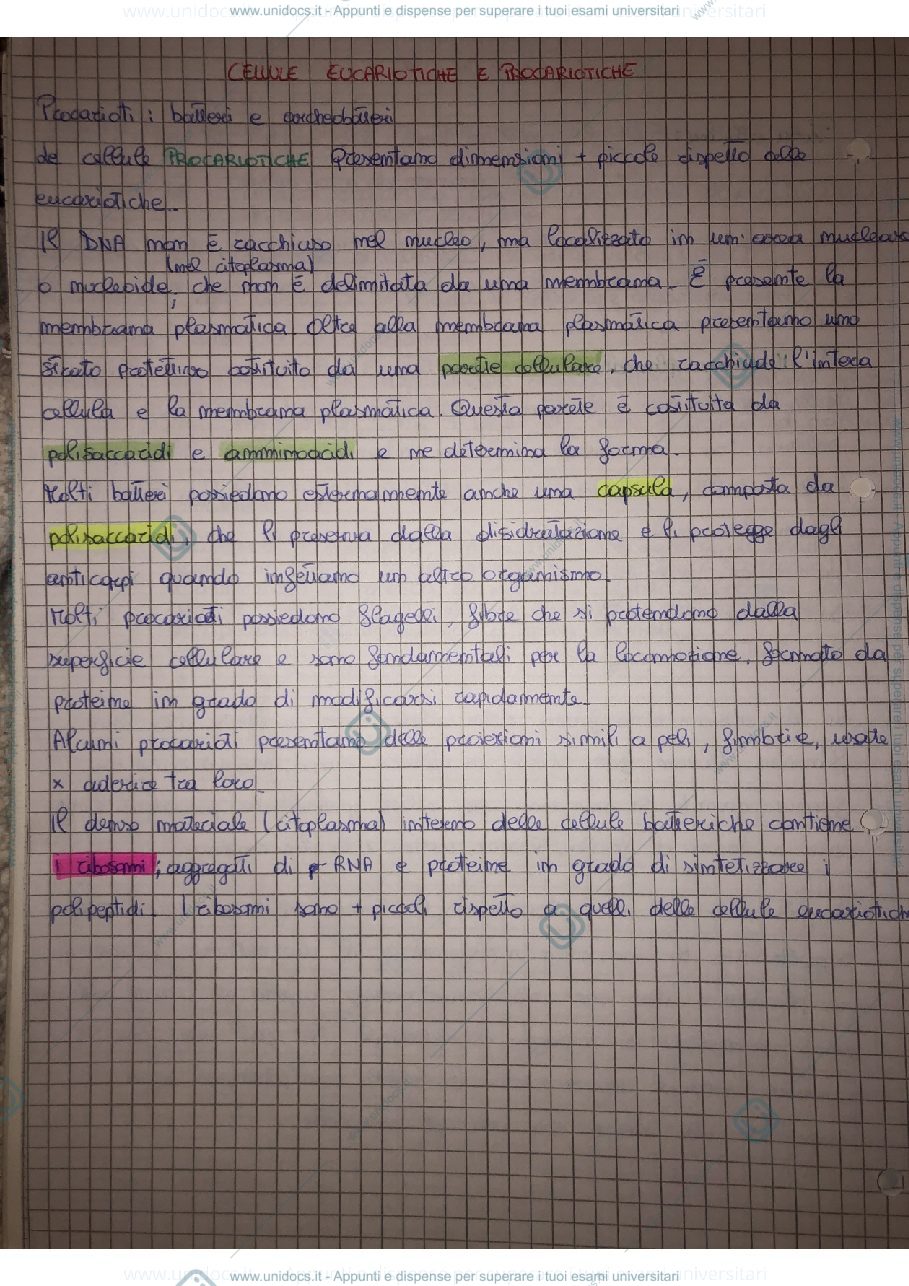 www.unidocs.it - Appunti e dispense per superare i tuoi esami universitari
CELLULE EUCARIOTICHE E PROCARIOTICHE
Procarioti : batteri e archeobatteri
Le cellule PROCARIOTICHE presentano dimensioni + piccole rispetto alle
eucariotiche.
Il DNA non è racchiuso nel nucleo, ma localizzato in un' area nucleare
(nel citoplasma)
o nucleoide, che non è delimitata da una membrana. È presente la
membrana plasmatica oltre alla membrana plasmatica presentano uno
strato protettivo costituito da una parete cellulare, che racchiude l'intera
cellula e la membrana plasmatica. Questa parete è costituita da
polisaccaridi e amminoacidi e ne determina la forma.
Molti batteri possiedono esternamente anche una capsula, composta da
polisaccaridi, che li preserva dalla disidratazione e li protegge dagli
anticorpi quando infettano un altro organismo.
Molti procarioti possiedono flagelli, fibre che si protendono dalla
superficie cellulare e sono fondamentali per la locomozione, formate da
proteine in grado di modificarsi rapidamente.
Alcuni procarioti presentano delle proiezioni simili a peli, fimbrie, usate
x aderire tra loro.
Il denso materiale (citoplasma) interno delle cellule batteriche contiene
i ribosomi; aggregati di RNA e proteine in grado di sintetizzare i
polipeptidi. I ribosomi sono + piccoli rispetto a quelli delle cellule eucariotiche
www.unidocs.it - Appunti e dispense per superare i tuoi esami universitari